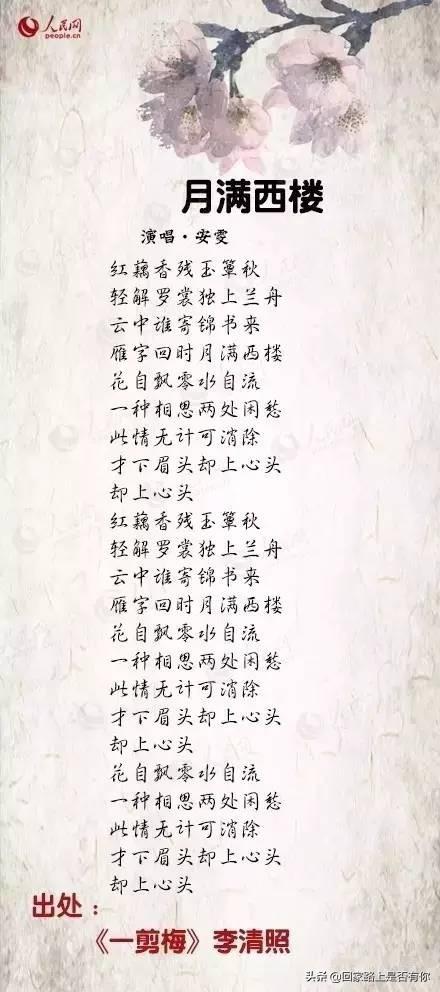 人民网
people.cn
月满西楼
演唱·安雯
红藕香残玉簟秋
轻解罗裳独上兰舟
云中谁寄锦书来
雁字回时月满西楼
花自飘零水自流
一种相思两处闲愁
此情无计可消除
才下眉头却上心头
却上心头
红藕香残玉簟秋
轻解罗裳独上兰舟
云中谁寄锦书来
雁字回时月满西楼
花自飘零水自流
一种相思两处闲愁
此情无计可消除
才下眉头却上心头
却上心头
花自飘零水自流
一种相思两处闲愁
此情无计可消除
才下眉头却上心头
却上心头
出处：
《一剪梅》李清照
头条 @回家路上是否有你